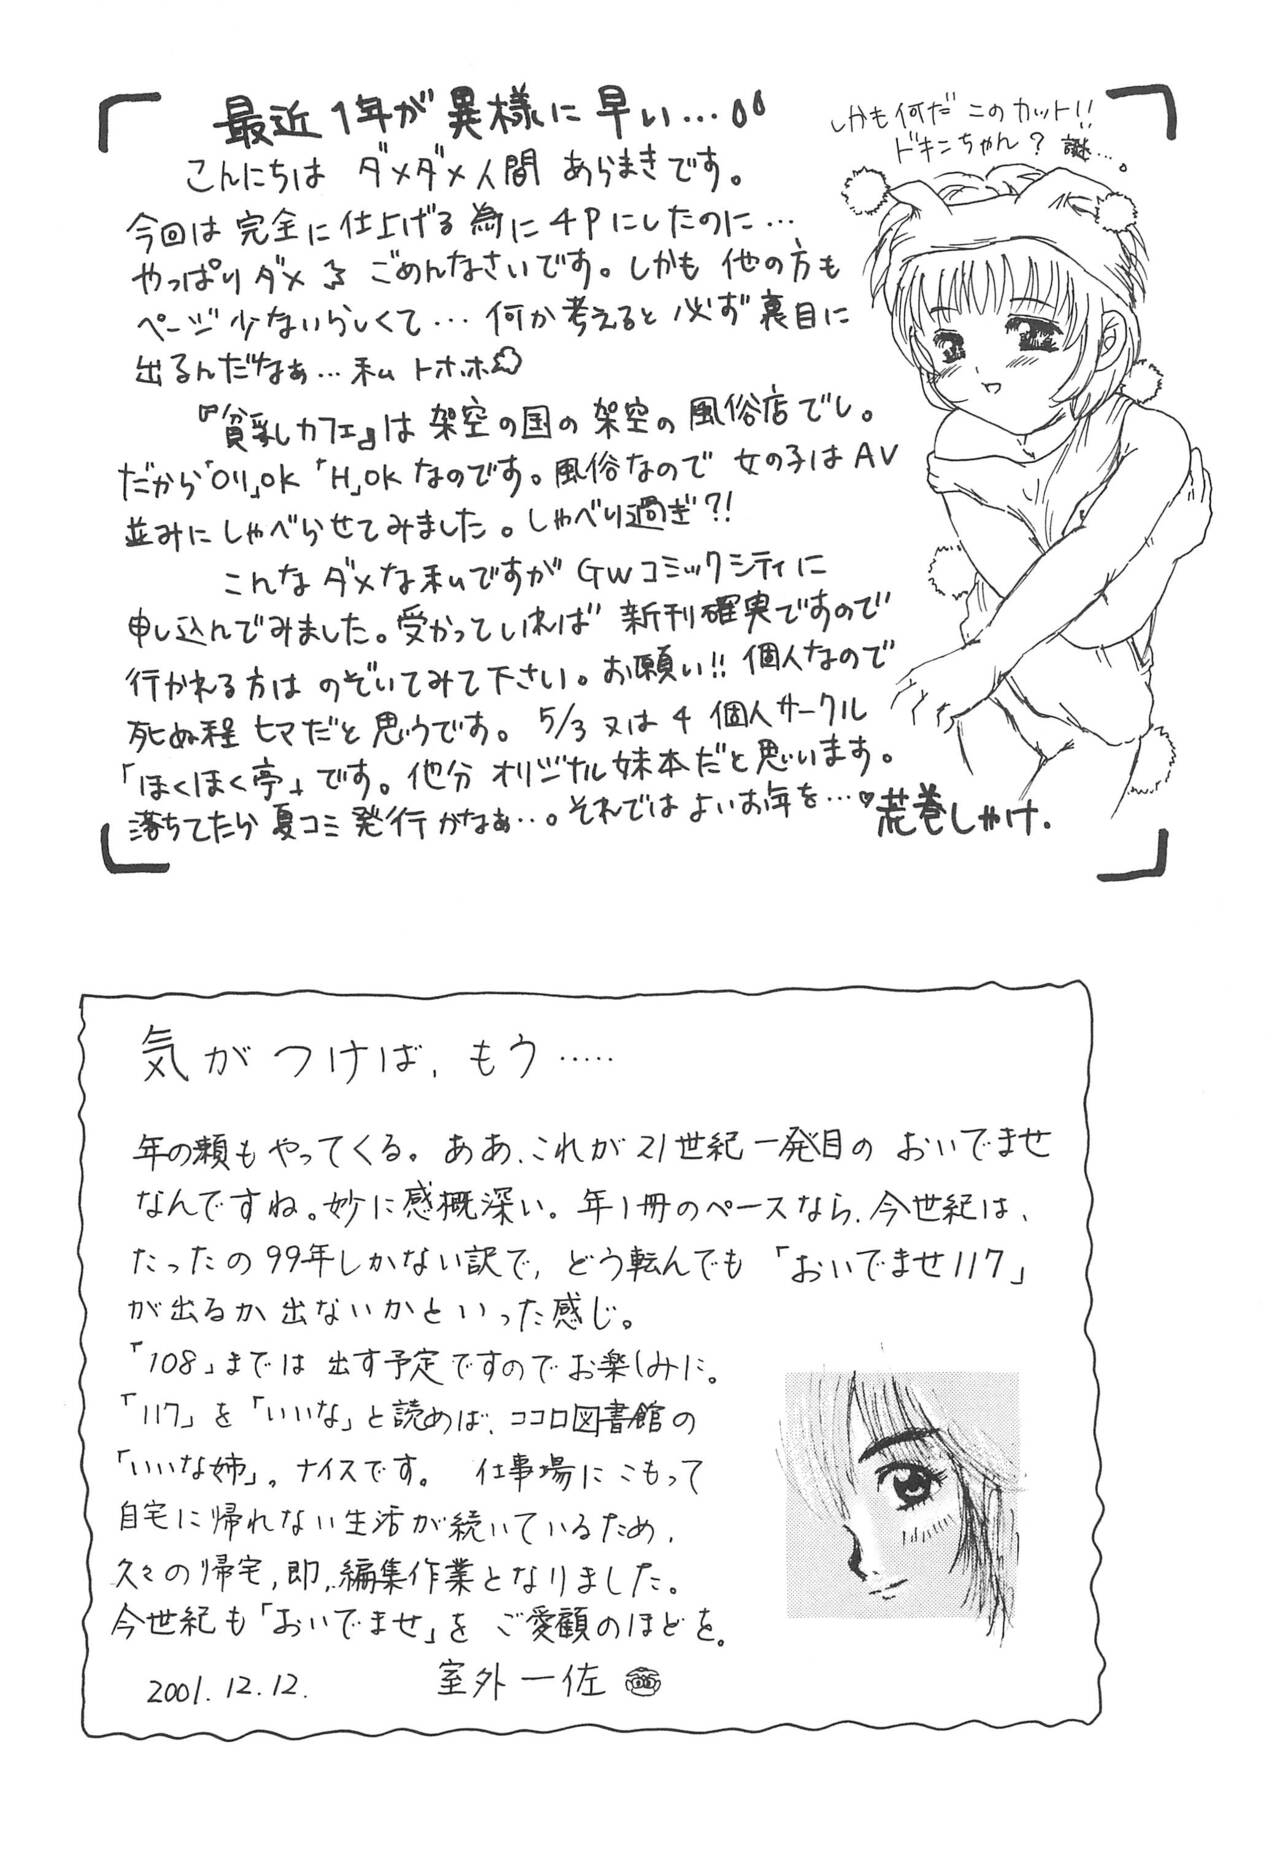 最近1年が異様に早い…
しかも何だこのカット!!
ドキンちゃん？謎…。
こんにちは ダメダメ人間 あらまきです。
今回は 完全に仕上げる為に4Pにしたのに…
やっぱりダメ ごめんなさいです。しかも 他の方も
ページ少ないらしくて… 何か考えると 必ず裏目に
出るんだなぁ… 私 トホホ
『貧乳カフェ』は 架空の国の架空の風俗店でし。
だから「ロリ」OK「H」OKなのです。風俗なので 女の子はAV
並みにしゃべらせてみました。しゃべり過ぎ?!
こんなダメな私ですが GWコミックシティに
申し込んでみました。受かっていれば 新刊確実ですので
行かれる方は のぞいてみて下さい。お願い!! 個人なので
死ぬ程 ヒマだと思うです。 5/3又は4 個人サークル
「ほくほく亭」です。他分 オリジナル妹本だと思います。
落ちてたら 夏コミ発行かなぁ…。それでは よいお年を…♥荒巻しゃけ.
気がつけば、もう……
年の瀬もやってくる。ああ、これが21世紀一発目の おいでませ
なんですね。妙に感慨深い。年1冊のペースなら、今世紀は、
たったの99年しかない訳で、どう転んでも 「おいでませ117」
が出るか、出ないかといった感じ。
「108」までは 出す予定ですのでお楽しみに。
「117」を「いいな」と読めば、ココロ図書館の
「いいな姉」。ナイスです。 仕事場にこもって
自宅に帰れない生活が続いているため、
久々の帰宅、即、編集作業となりました。
今世紀も「おいでませ」を ご愛顧のほどを。
2001.12.12. 室外一佐